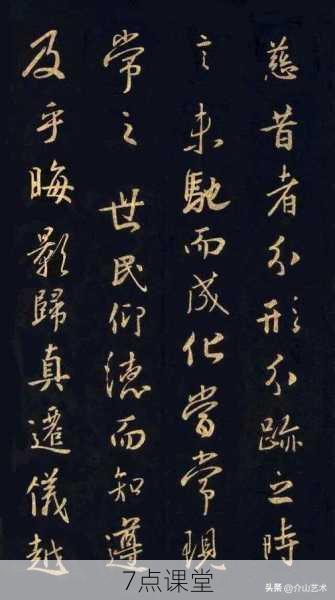 慈昔者分形分跡之時
言未馳而成化當常現
常之世民仰德而知遵
及乎晦影歸真遷儀越
7点课堂
头条 @介山艺术